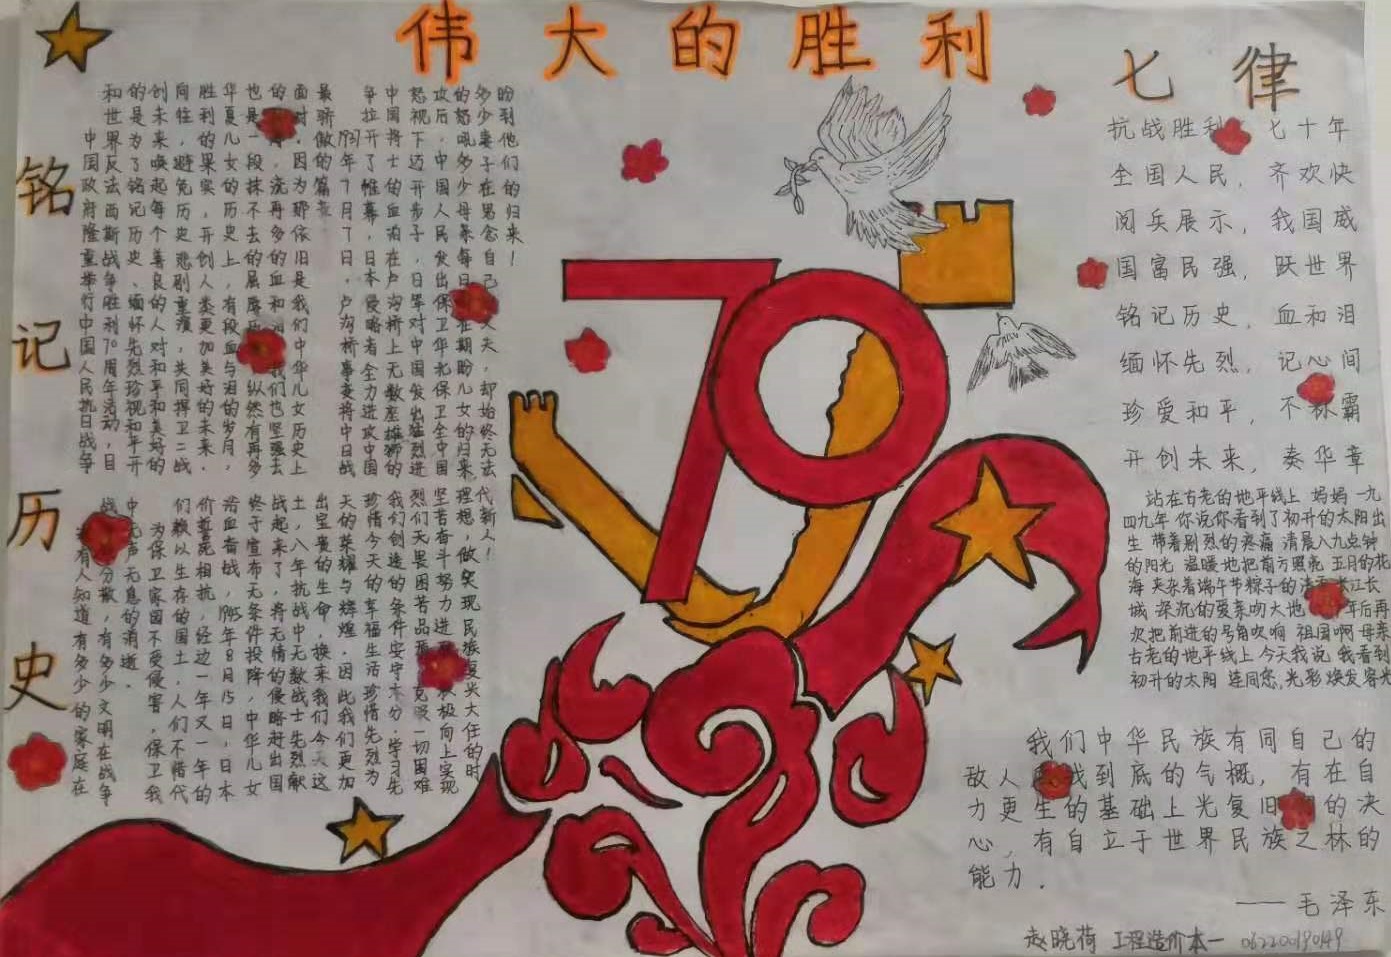 伟大的胜利
铭记历史
中国政府隆重举行中国人民抗日战争
和世界反法西斯战争胜利70周年活动,目
的是为了铭记历史、缅怀先烈珍视和平开
创未来唤起每个善良的人对和平和美好的
向往,避免历史悲剧重演,共同捍卫二战
胜利的果实,开创人类更加美好的未来.
华夏儿女的历史上,有段血与泪的岁月,
也是一段抹不去的屈辱 纵然有再多
的 流再多的血和 我们也坚强去
面对,因为那依旧是我们中华儿女历史上
最骄傲的篇章
1937年7月7日,卢沟桥事变将中日战
争拉开了帷幕,日本侵略者全力进攻中国
中国将士的血泊在卢沟桥上无数座雄狮的
怒视下迈开步子,日军对中国发出猛烈进
攻后,中国人民发出保卫华北保卫全中国
的怒吼多少母亲每日 在期盼儿女的归来
多少妻子在 念自己 丈夫,却始终无法
盼到他们的归来!
没有人知道有多少的家庭在
战 分散,有多少文明在战争
中无声无息的消逝.
为保卫家园不受侵害,保卫我
们赖以生存的国土,人们不惜代
价誓死相抗,经过一年又一年的
浴血奋战,1945年8月15日,日本
终于宣布无条件投降,中华儿女
战起来了,将无情的侵略赶出国
土,八年抗战中无数战士先烈献
出宝贵的生命,换来我们今天这
天的荣耀与辉煌.因此我们更加
珍惜今天的幸福生活珍惜先烈为
我们创造的条件安守本分,学习先
烈们无畏困苦品 克服一切困难
坚苦奋斗努力进 积极向上实现
理想,做实现民族复兴大任的时
代新人!
70
七律
抗战胜利 七十年
全国人民,齐欢快
阅兵展示,我国威
国富民强,跃世界
铭记历史,血和泪
缅怀先烈,记心间
珍爱和平,不称霸
开创未来,奏华章
站在古老的地平线上 妈妈 一九
四九年 你说你看到了初升的太阳出
生 带着剧烈的疼痛 清晨八九点钟
的阳光 温暖地把前方照亮 五月的花
海 夹杂着端午节粽子的清 长江长
城 深沉的爱亲吻大地 年后再
次把前进的号角吹响 祖国啊 母亲
古老的地平线上 今天我说 我看到
初升的太阳 连同您,光彩焕发容光
我们中华民族有同自己的
敌人 战到底的气概,有在自
力更生的基础上光复旧 的决
心,有自立于世界民族之林的
能力.
——毛泽东
赵晓荷 工程造价本一